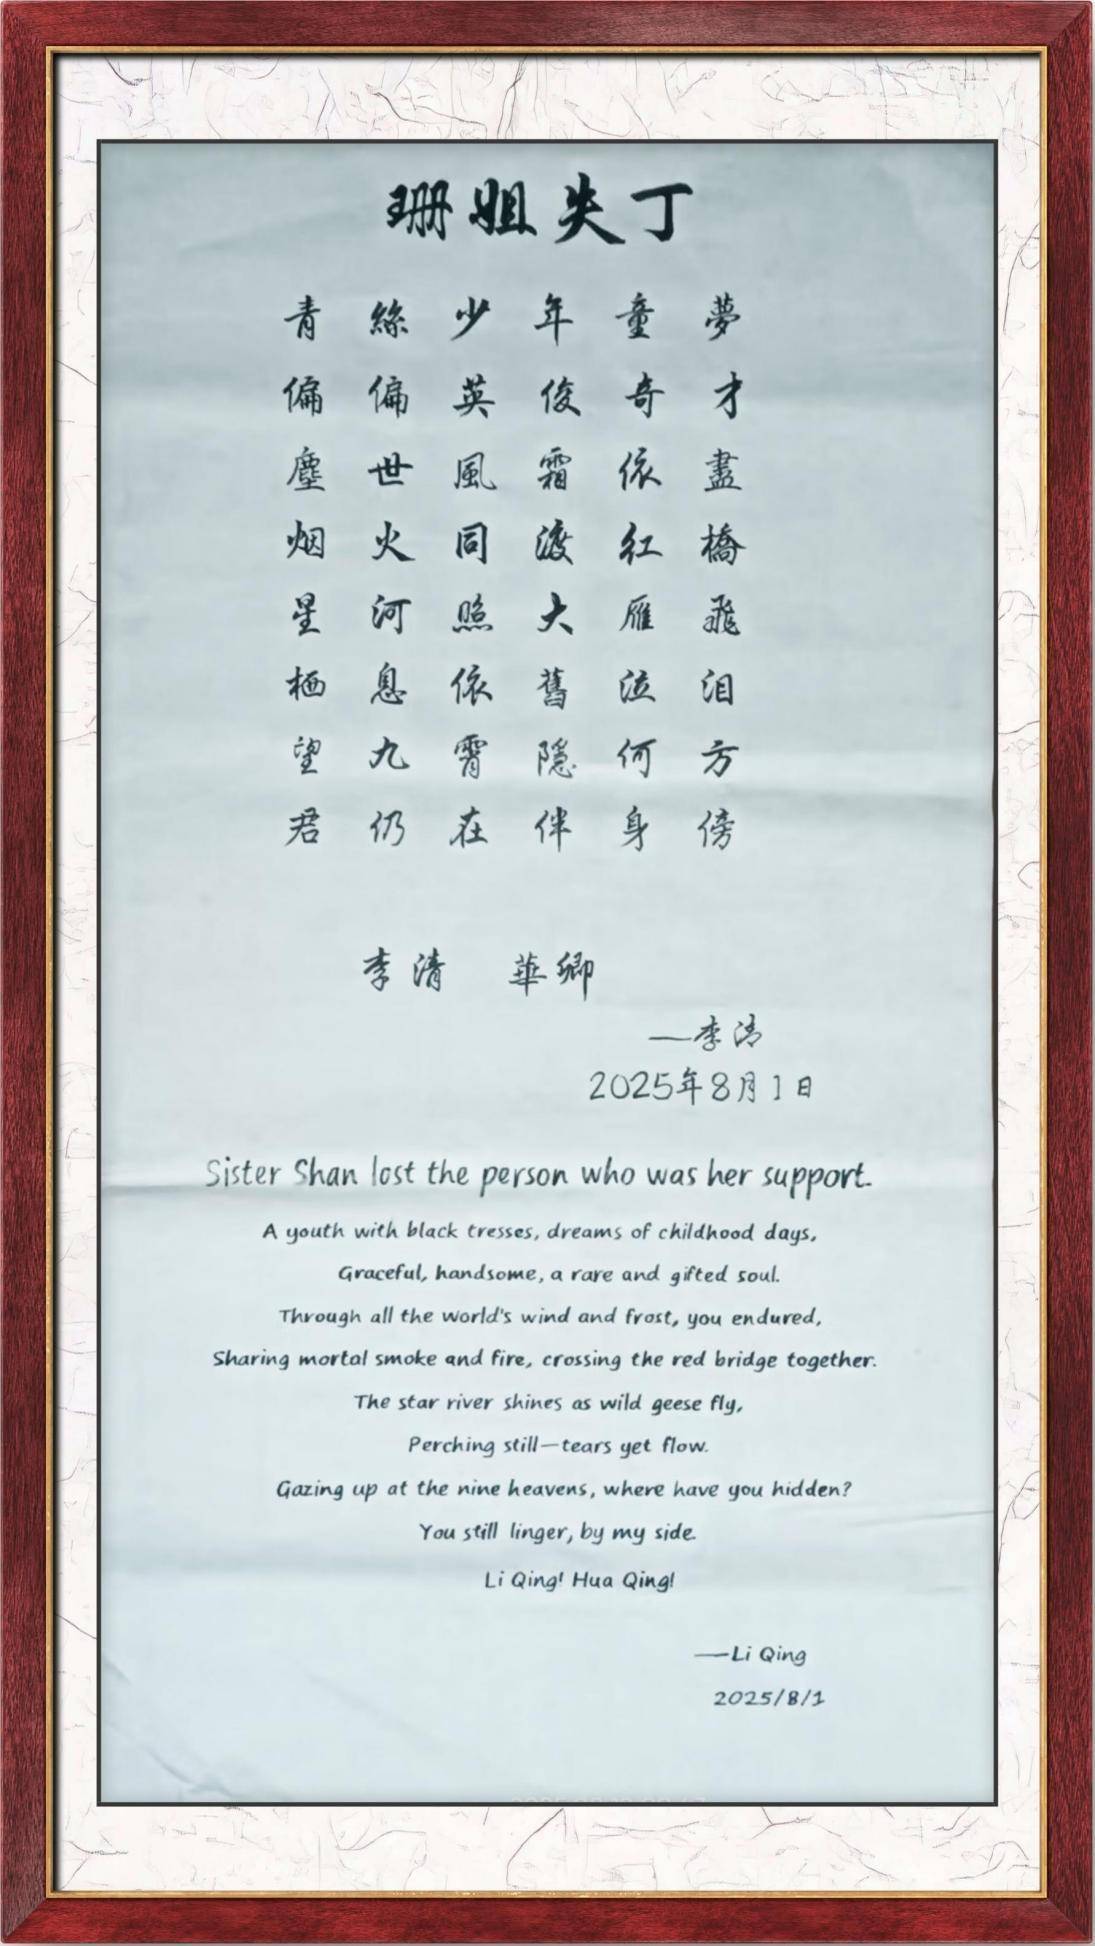 珊姐失丁
青絲少年童夢
偏偏英俊奇才
塵世風霜依盡
烟火同渡紅橋
星河照大雁飛
栖息依舊泣泪
望九霄隱何方
君仍在伴身傍
李清 華卿
—李清
2025年8月1日
Sister Shan lost the person who was her support.
A youth with black tresses, dreams of childhood days,
Graceful, handsome, a rare and gifted soul.
Through all the world's wind and frost, you endured,
Sharing mortal smoke and fire, crossing the red bridge together.
The star river shines as wild geese fly,
Perching still—tears yet flow.
Gazing up at the nine heavens, where have you hidden?
You still linger, by my side.
Li Qing! Hua Qing!
—Li Qing
2025/8/1